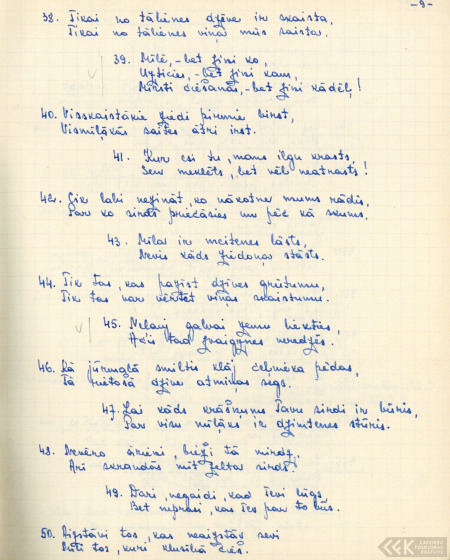 -9-
38. Tikai no tālienes dzīve ir skaista,
Tikai no tālienes viņa mūs saista.
39. Mīlē, - bet zini ko,
Uzticies, - bet zini kam,
Mirsti ciešanās, - bet zini kādēļ!
40. Visskaistākie ziedi pirmie birst,
Vismīļākās saites ātri irst.
41. Kur esi tu, mans ilgu krasts,
Sen meklēts, bet vēl neatrasts!
42. Cik labi nezināt, ko nākotne mums rādīs,
Par ko sirds priecāsies un pēc kā skums.
43. Mīla ir meitenes lāsts,
Devis kāds ziedoņa stāsts.
44. Tik tas, kas pazīst dzīves grūtumu,
Tik tas var vērtēt viņas skaistumu.
45. Neļauj galvai zemu liekties,
Acīs tad zvaigznes neredzēs.
46. Kā jūrmalā smiltis klāj ceļinieka pēdas,
Tā mūžā dzīve atmiņas segs.
47. Lai kāds krāšņums Tavu sirdi ir būris,
Par visu mīļāks ir dzimtenes stūris.
48. Drēbēs bieži tā mirdz,
Arī skrandās mīt zelta sirds!
49. Dari, negaidi, kad Tevi lūgs
Bet neprasi, kas īcs par to būs.
50. Aizstāvi tos, kas neaizstāv sevi
tos, kuri klusībā cieš.
LATVIEŠU
FOLKLORAS
KRĀTUVE